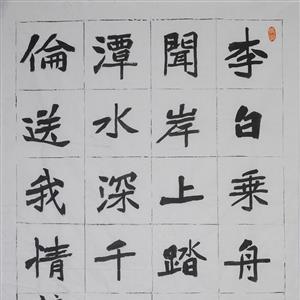 李白乗舟
聞岸上踏
潭水深千
倫送我情